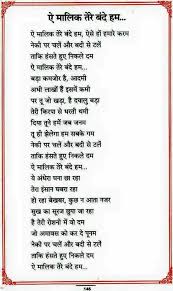 ऐ मालिक तेरे बंदे हम...
ऐ मालिक तेरे बंदे हम, ऐसे हों हमारे करम
नेकी पर चलें और बदी से टलें
ताकि हंसते हुए निकले दम
ऐ मालिक तेरे बन्दे...
बड़ा कमजोर है, आदमी
अभी लाखों हैं इसमें कमी
पर तू जो खड़ा, है दयालु बड़ा
तेरी किरपा से धरती थमी
दिया तूने हमें जब जनम
तू ही झेलेगा हम सबके गम
नेकी पर चलें और बदी से टलें
ताकि हंसते हुए निकले दम
ऐ मालिक तेरे बन्दे...
ये अंधेरा घना छा रहा
तेरा इंसान घबरा रहा
हो रहा बेखबर, कुछ न आता नजर
सुख का सूरज छुपा जा रहा
है तेरी रोशनी में वो दम
जो अमावस को कर दे पूनम
नेकी पर चलें और बदी से टलें
ताकि हंसते हुए निकले दम
ऐ मालिक तेरे बन्दे हम...